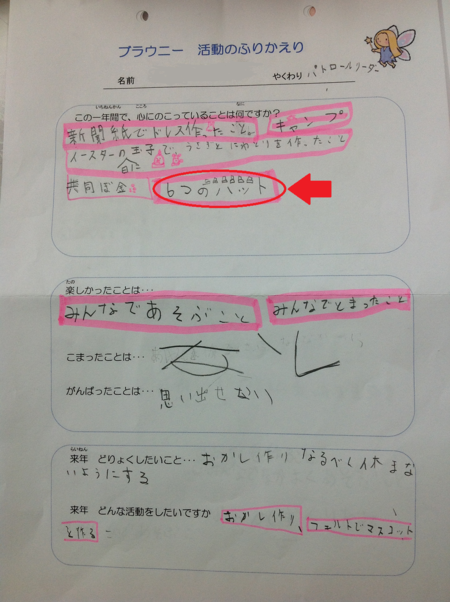 ブラウニー 活動のふりかえり
名前 やくわり パトロールリーダー
この一年間で、心にのこっていることは何ですか?
いちねんかん こころ なに
新聞紙でドレス作ったこと。 キャンプ
イースターの玉子で うさぎとにわとりを作ったこと
共同ぼ金 6つのハット
たの
楽しかったことは・・・
みんなであそぶこと みんなでとまったこと
こまったことは・・・ なし
がんばったことは・・・ 思い出せない
らいねん
来年 どりょくしたいこと・・・ おかし作り なるべく休まな
いようにする
来年 どんな活動をしたいですか おかし作り、フェルトでマスコット
を作る